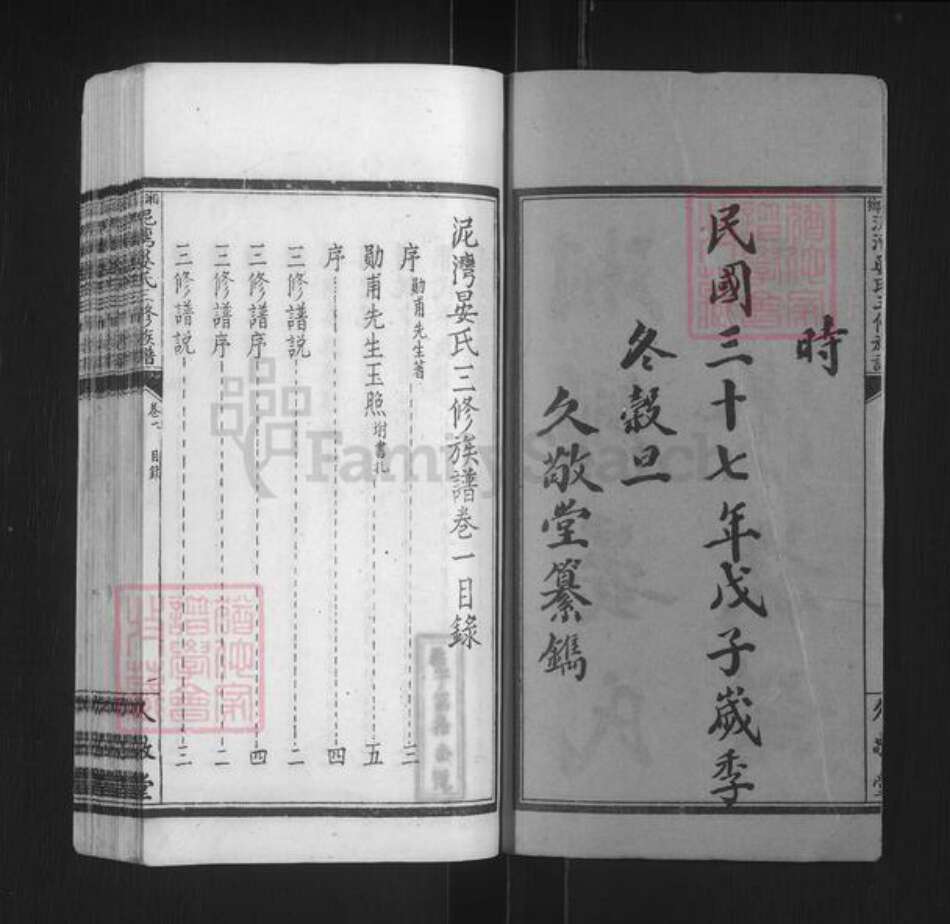 時
民國三十七年戊子歲季
冬穀旦
久敬堂纂鐫
泥灣晏氏三修族譜卷一目錄
序 勛甫先生著 三
勛甫先生玉照 坿書札 五
序 四
三修譜說 二
三修譜序 四
三修譜序 二
三修譜說 三
湘泥灣晏氏三修族譜
卷一 目錄
久敬堂
FamilySearch